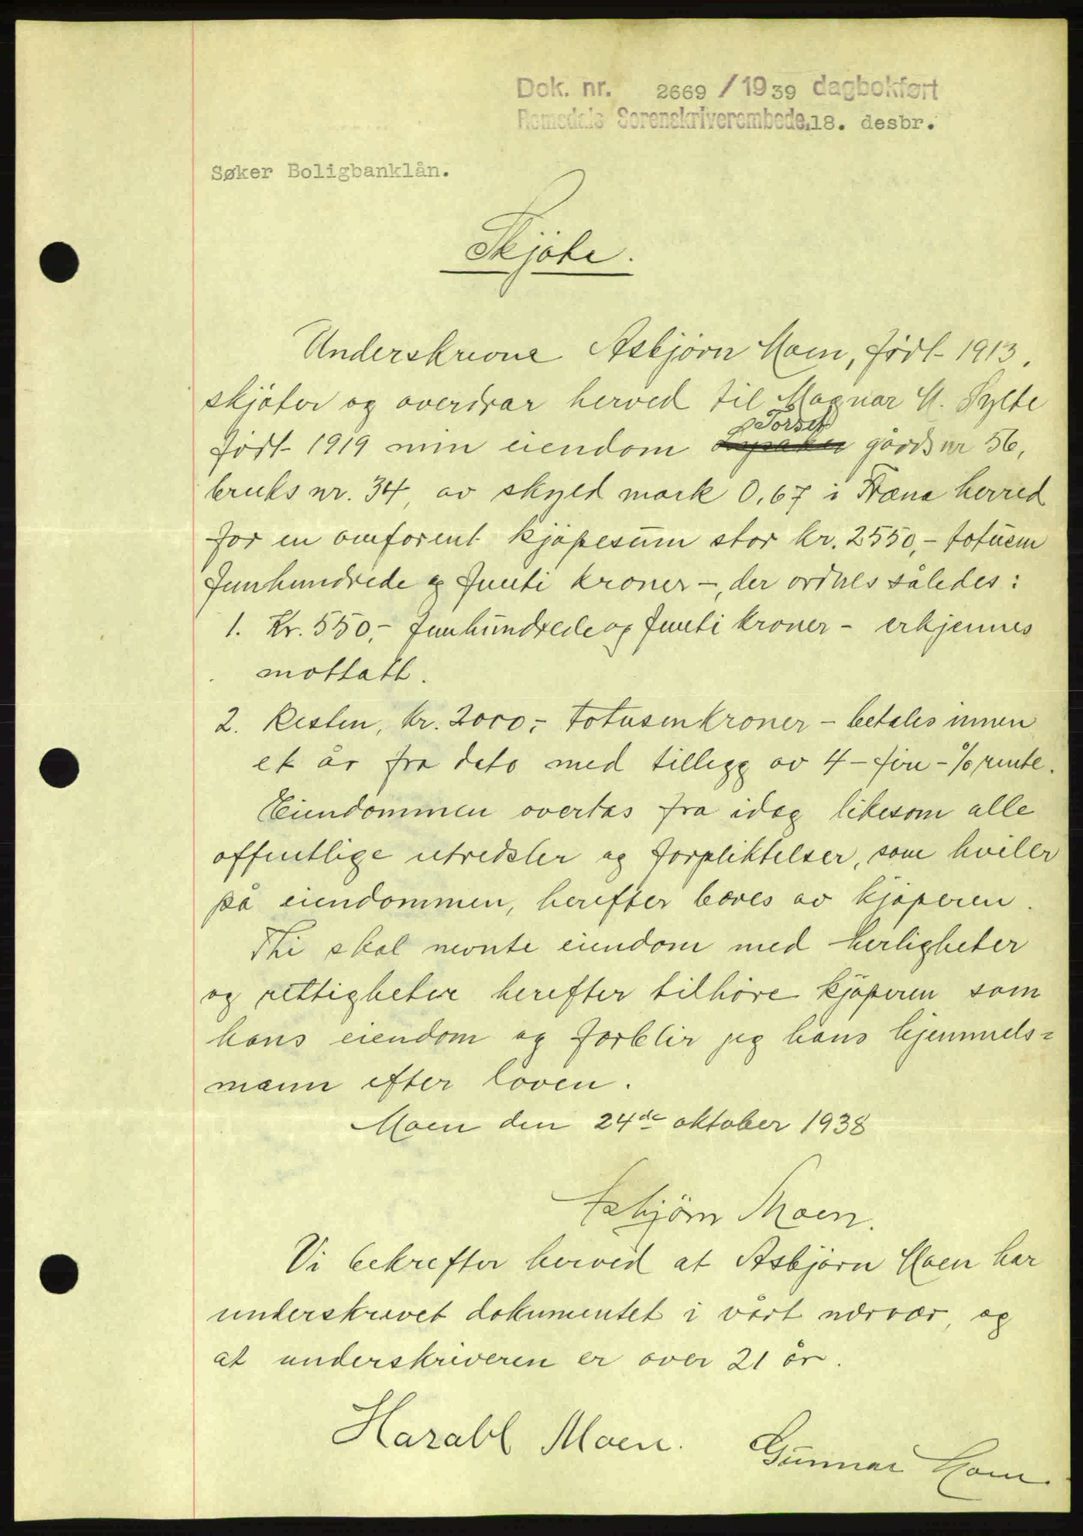 Dok. nr. 2669 /19 39 dagbokført
Romsdals Sorenskriverembede, 18. desbr.
Søker Boligbanklån.
Skjøte.
Underskrevne Asbjörn Moen, födt 1913,
skjöter og overdrar herved til Magnar M. Sylte
Torset
födt 1919 min eiendom gårdsnr 56,
bruks nr. 34, av skyld mark 0,67 i Fræna herred
for en omforent kjöpesum stor kr. 2550,- totusen
femhundrede og femti kroner -, der ordnes således:
1. Kr. 550,- femhundrede og femti kroner - erkjennes
mottatt.
2. Resten, kr. 2000,- totusenkroner - betales innen
et år fra dato med tillegg av 4 - fire - % rente.
Eiendommen overtas fra idag likesom alle
offentlige utredsler og forpliktelser, som hviler
på eiendommen, herefter bæres av kjöperen.
Thi skal nevnte eiendom med herligheter
og rettigheter herefter tilhöre kjöperen som
hans eiendom og forblir jeg hans hjemmels=
mann efter loven.
Moen den 24de oktober 1938
Asbjörn Moen.
Vi bekrefter herved at Asbjörn Moen har
underskrevet dokumentet i vårt nærvær, og
at underskriveren er over 21 år.
Harald Moen. Gunnar Moen.